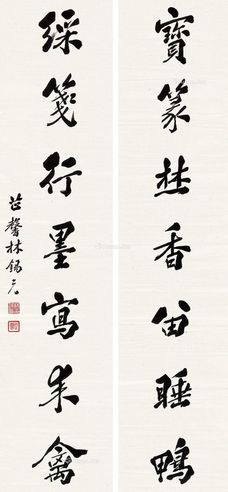 寶篆焚香留睡鴨
綵箋行墨寫來禽
芷馨林錫光